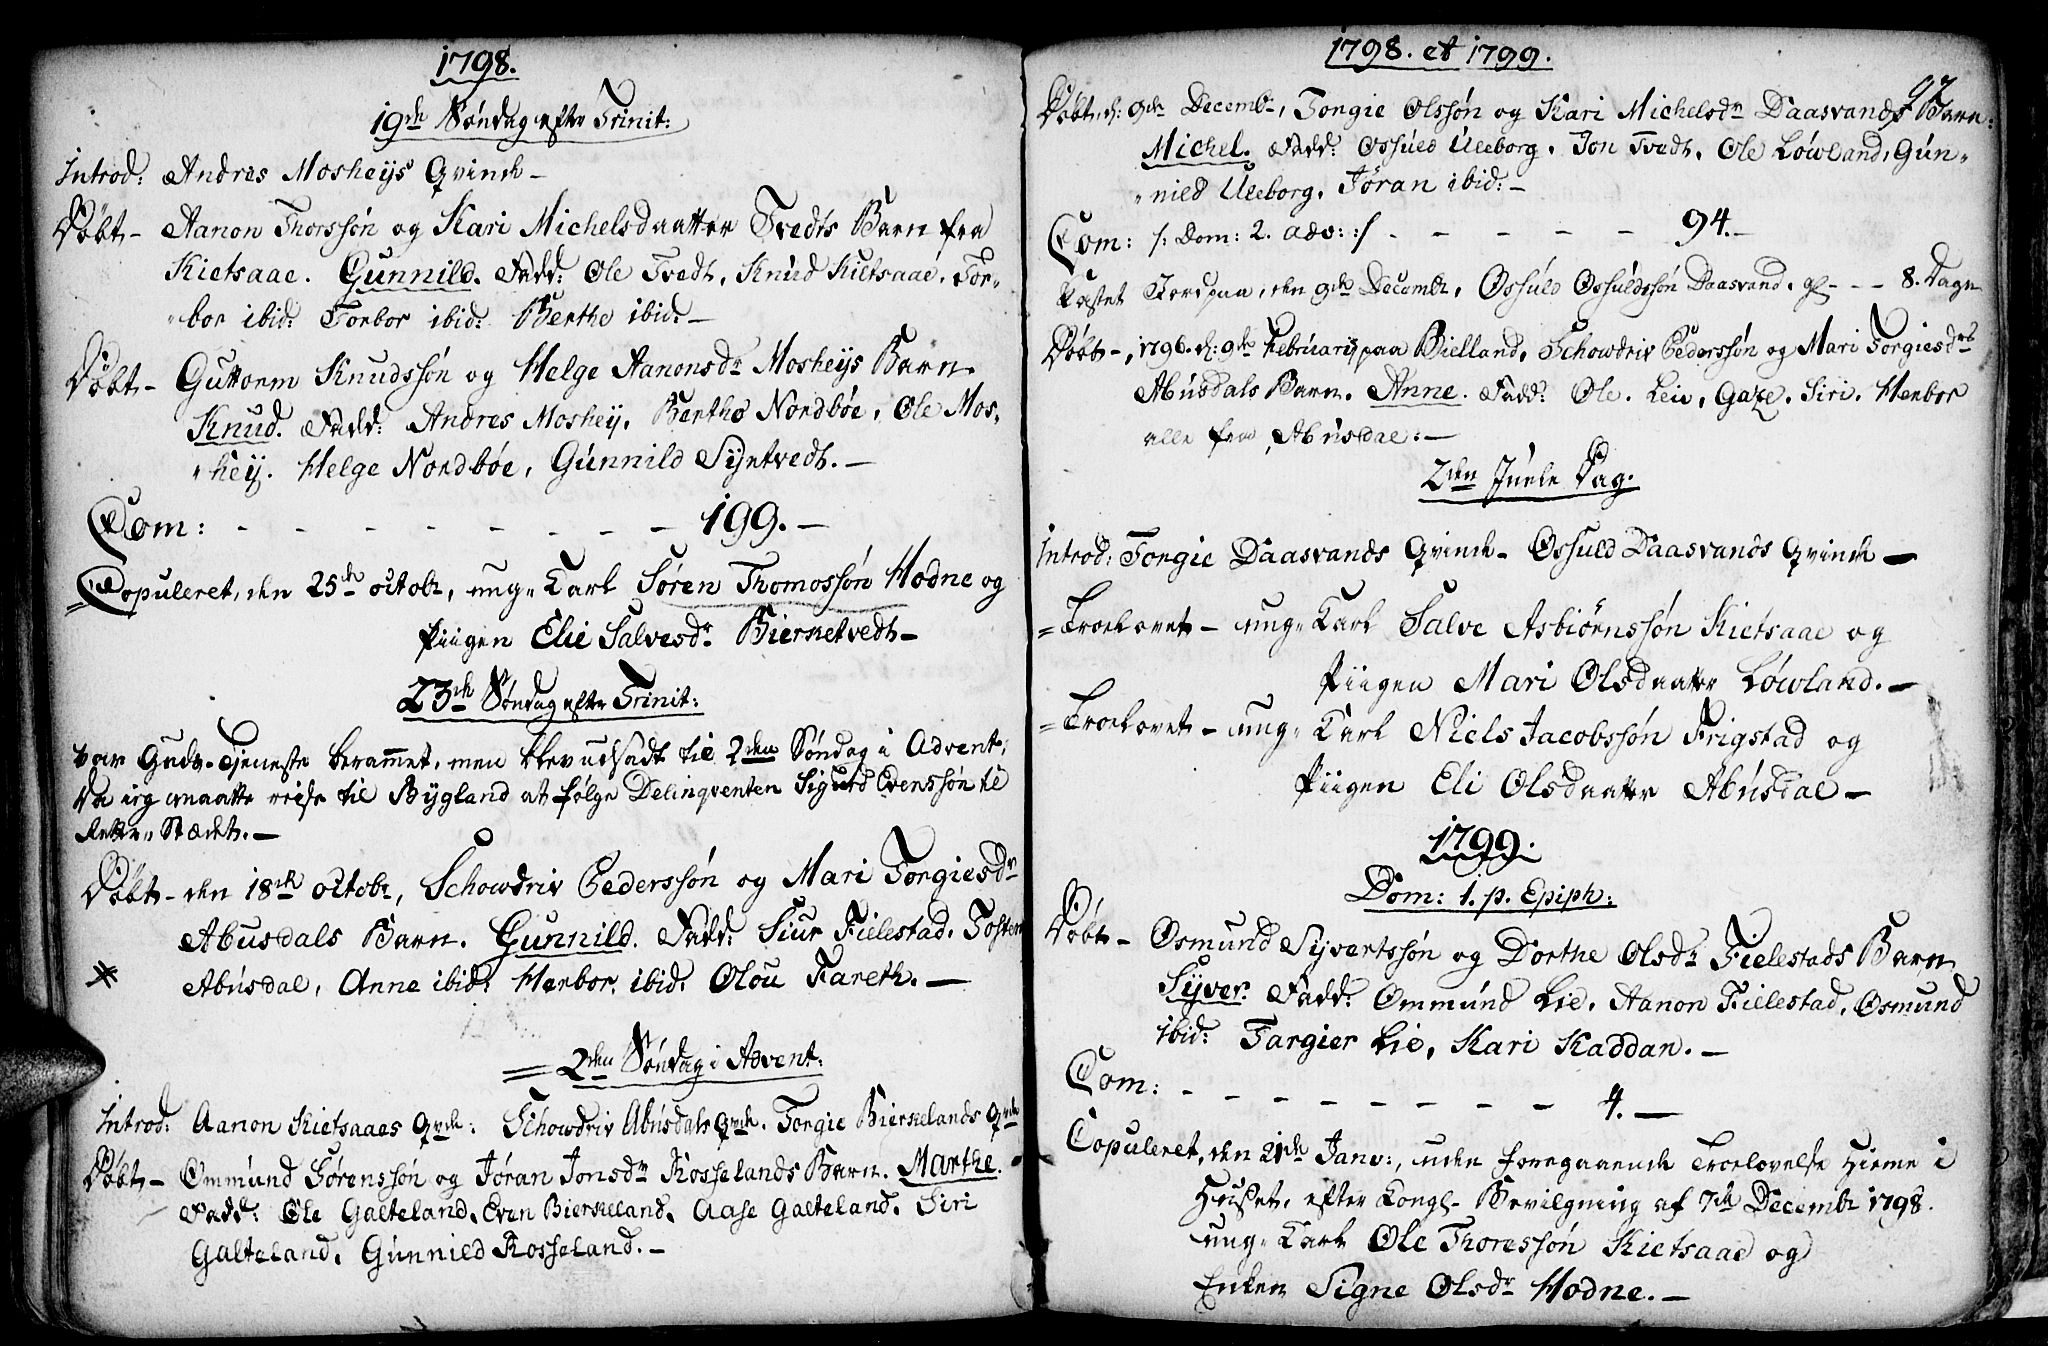 1798.
19de Søndag efter Trinit:
Introd: Andres Mosheÿs Qvinde –
Døbt – Aanon Thorssøn og Kari Michelsdaatter Tvedts Barn fra
Kietsaae. Gunnild. Fadd: Ole Tvedt, Knud Kietsaae, Tor-
bor ibid: Torbor ibid: Berthe ibid: –
Døbt – Guttorm Knudssøn og Helge Aanonsdr Mosheÿs Barn
Knud. Fadd: Andres Moshey, Berthe Nordbøe, Ole Mos-
heÿ. Helge Nordbøe, Gunnild Sÿntvedt. –
Com: – – – – – – – – 199. –
Copuleret, den 25de octobr, ung-Karl Søren Thomossøn Hodne og
Piigen Elie Salvesdr Bierketvedt –
23de Søndag efter Trinit:
var Guds-Tjeneste berammet, men blev udsadt til 2den Søndag i Advent,
da jeg maatte reise til Bygland at følge Delinqventen Sigurd Evenssøn til
Retter-Stædet. –
Døbt – den 18de octobr, Schowdriv Pederssøn og Mari Torgiesdr
Abusdals Barn. Gunnild. Fadd: Siur Fielestad, Tosten
Abusdal, Anne ibid: Herbor, ibid: Olou Fareth. –
2den Søndag i Advent:
Introd: Aanon Kietsaaes Qvde: Schowdriv Abusdals Qvde. Torgie Birkelands Qvde
Døbt – Ommund Sørenssøn og Jøran Jonsdr Rosselands Barn. Marthe.
Fadd: Ole Galteland, Even Bierkeland, Aase Galteland, Siri
Galteland, Gunnild Rosseland. –
1798. et 1799.
97
Døbt, d: 9de Decembr, Torgie Olssøn og Kari Michelsdr Daasvands Barn:
Michel. Fadd: Ossuld Uleborg, Jon Tvedt, Ole Løwland, Gun-
nild Uleborg, Jøran ibid: –
Com: /: Dom: 2. adv: :/ – – – – – 94. –
Kastet Jord paa, den 9de Decembr, Ossuld Ossuldssøn Daasvand, gl – – – 8. Dage
Døbt –, 1796. d: 9de Februarij paa Bielland, Schowdriv Pederssøn og Mari Torgiesdrs
Abusdals Barn. Anne. Fadd: Ole. Leiv, Gaze, Siri. Herbor
alle fra Abusdal: –
2den Juele Dag.
Introd: Torgie Daasvands Qvinde – Ossuld Daasvands Qvinde –
Troelovet – ung-Karl Salve Asbiørnssøn Kietsaae og
Piigen Mari Olsdaatter Løwland. –
Troelovet – ung-Karl Niels Jacobssøn Frigstad og
Piigen Eli Olsdaatter Abusdal –
1799.
Dom: 1. p. Epiph:
Døbt – Osmund Sÿvertssøn og Dorthe Olsdr Fielestads Barn
Sÿver. Fadd: Ommund Lie, Aanon Fielestad, Osmund
ibid: Targier Lie, Kari Kaddan. –
Com: – – – – – – – – 4. –
Copuleret, den 21de Janv:, uden foregaaende Troelovelse hieme i
Huset, efter Kongl- Bevilgning af 7de Decembr 1798.
ung-Karl Ole Thoressøn Kietsaae og
Enken Signe Olsdr Hodne. –